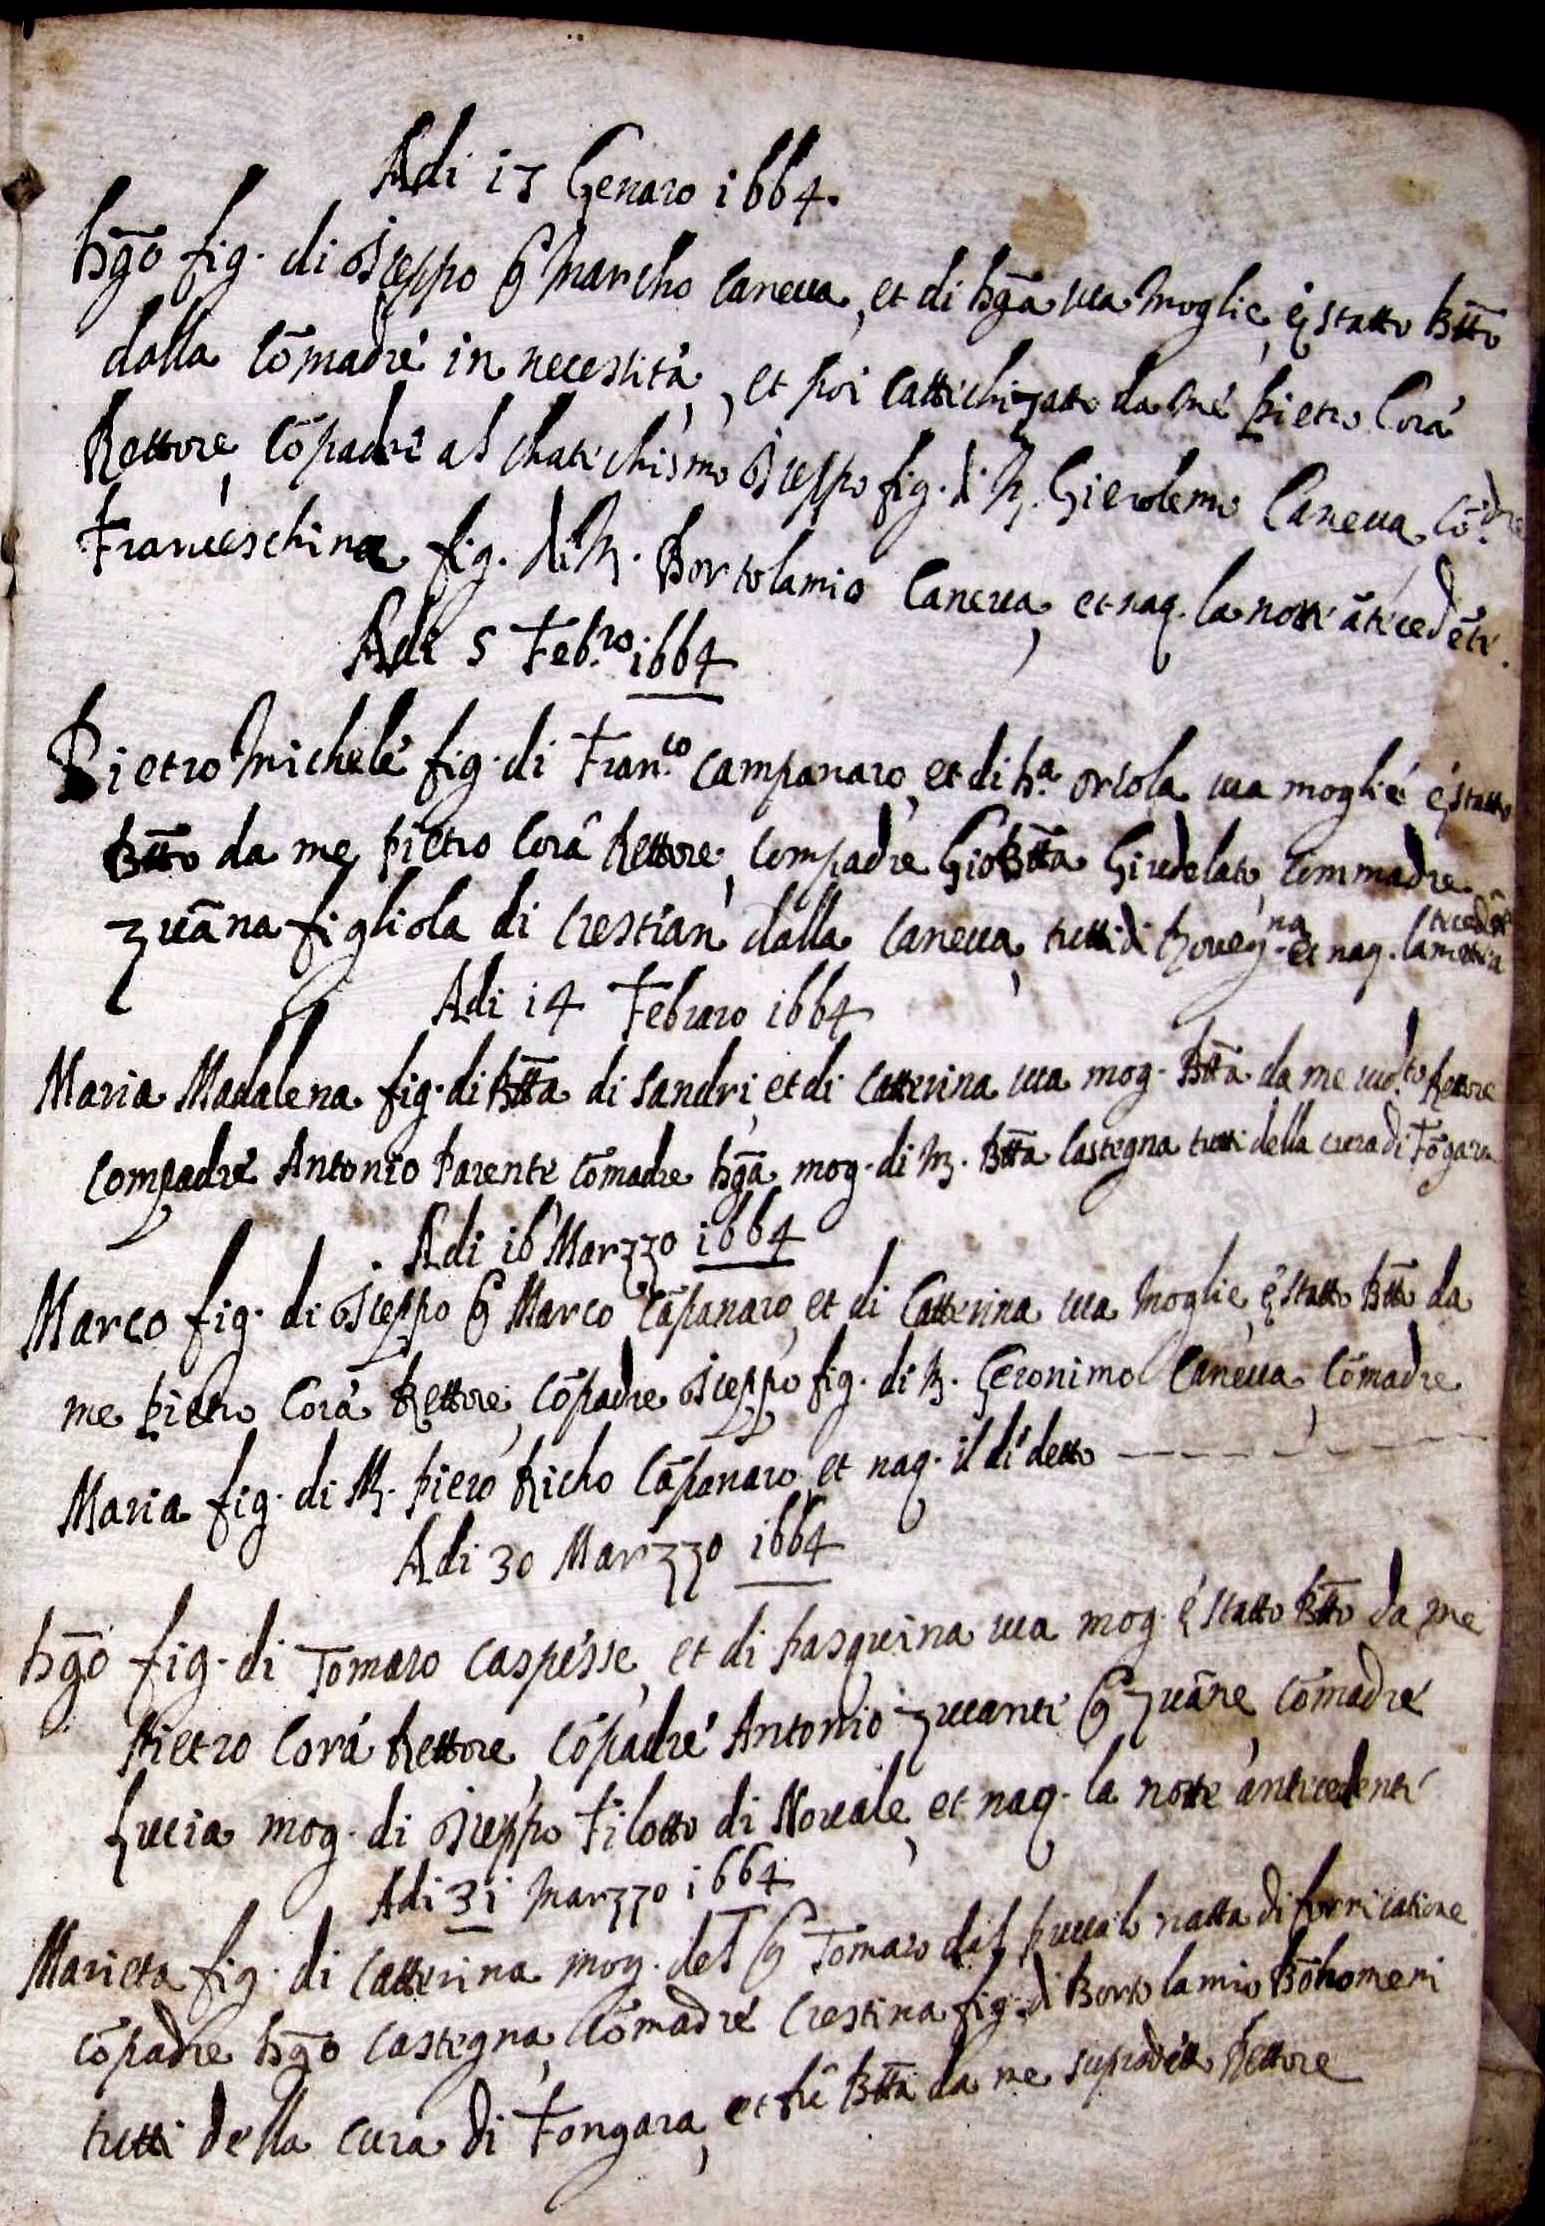 Adi 15 Genaro 1664.
hg̅o fig. di Iseppo q Marcho Caneua, et di hg̅a sua Moglie, è statto Btt̅o
dalla Co̅madré in necessità, et poi Cattichizatto da mé Pietro Corà
Rettore, Co̅padré al Chatichismo Iseppo fig. di M. Gierolemo Caneua, Co̅.dre
Franceschina fig. di M. Bortolamio Caneua, et naq. la notté a̅teced e̅te.
Adi 5 Feb.ro 1664
Pietro Michelé fig. di Fran.co Campanaro, et di h.a orsola sua moglié é statto
Btt̅o da me Pietro Corà Rettore, Compadre GioBtt̅a Giudelato, Commadre
Zua̅na figliola di Crestian dalla Caneua, tutti di Roueg.na et naq. la nottea
tecede̅t
Adi 14 Febraro 1664
Maria Madalena fig. di Btt̅a di Sandri, et di Catterina sua mog. Btt̅a da me sud.to Rettore
Compadré Antonio Parente Co̅madre hg̅a mog. di M. Btt̅a Castegna tutti della cura di Fo̅gara
Adi 16 Marzzo 1664
Marco fig. di Iseppo q Marco Ca̅panaro, et di Catterina sua Moglie, è statto Btt̅o da
me Pietro Corà Rettore, Co̅padre Iseppo fig. di M. Geronimo Caneua, Co̅madre
Maria fig. di M. Piero Richo Ca̅panaro, et naq. il dí detto
Adi 30 Marzzo 1664
hg̅o fig. di Tomaro Caspésse, et di Pasquina sua mog. é statto Btt̅o da me
Pietro Corá Rettore, Co̅padré Antonio Zuuanti q Zua̅ne, Co̅madré
Lucia mog. di Iseppo Filotto di Nouale, et naq. la notte antecedenté
Adi 31 Marzzo 1664
Marietta fig. di Catterina mog. del q Tomaro dal natta di fornicatione
Co̅padre hg̅o Castegna, Co̅madré Crestina fig. di Bortolamio Bo̅homeni
tutti della Cura di Fongara, et fù Btt̅a da me supradetto Rettore